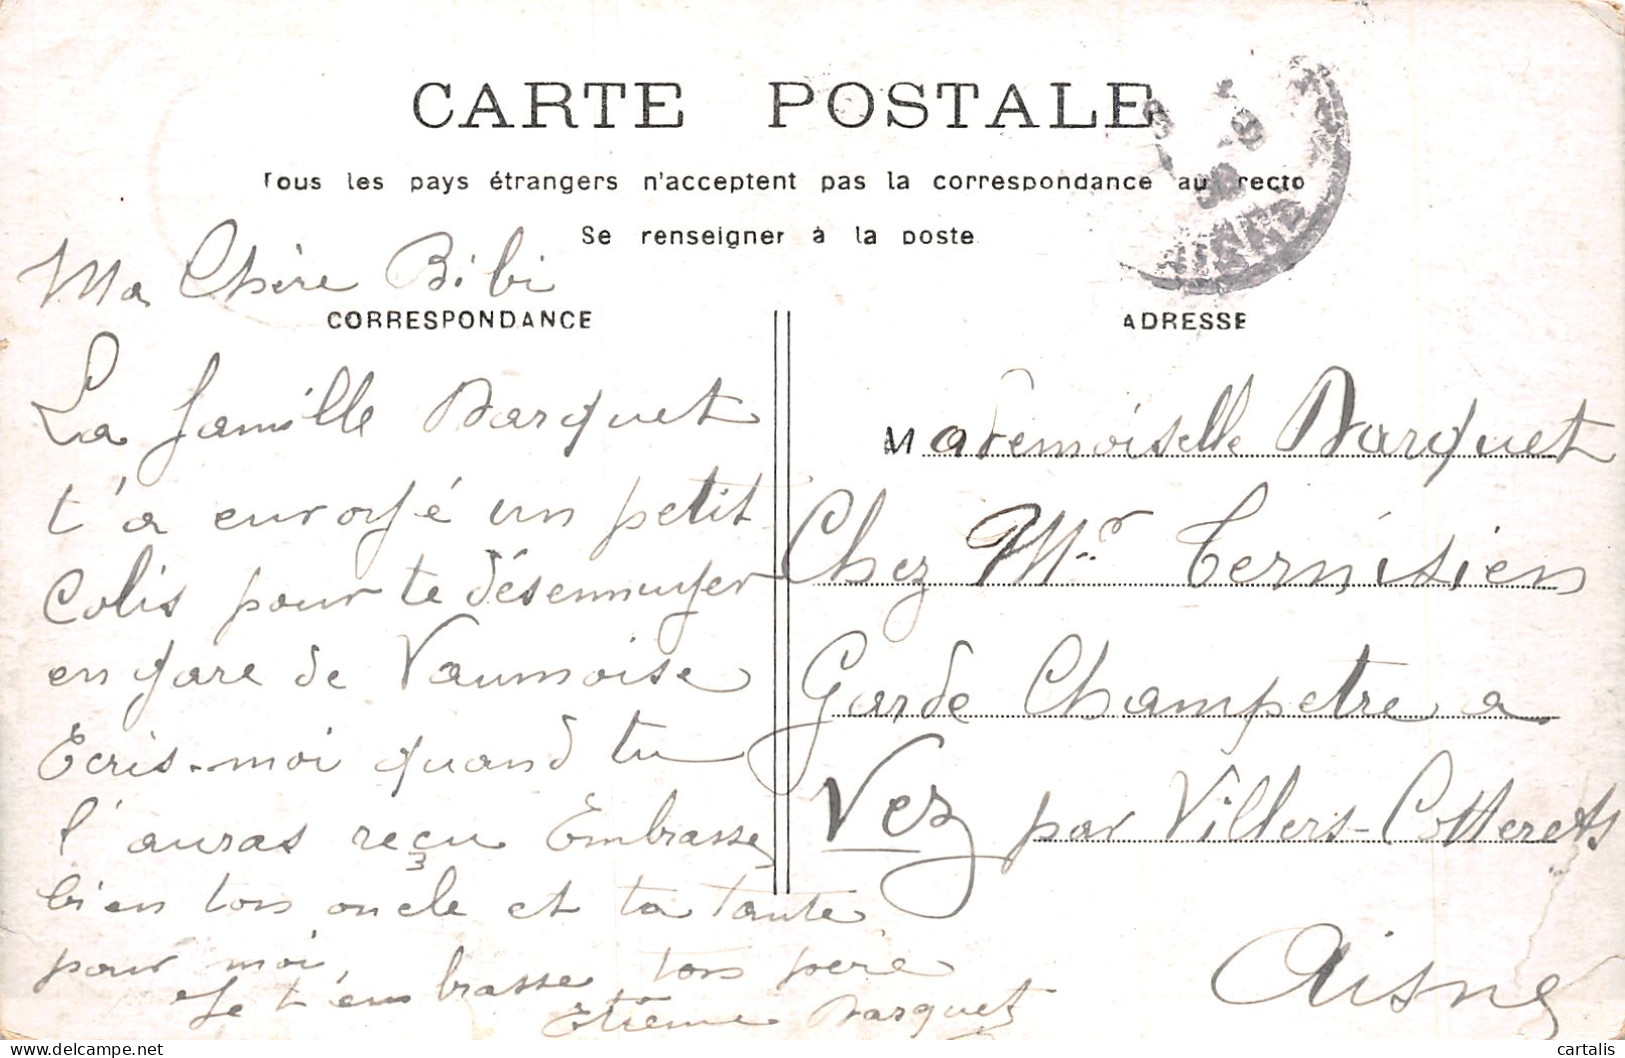 CARTE POSTALE
Tous les pays étrangers n'acceptent pas la correspondance au recto
Se renseigner à la poste
Ma Chère Bibi
CORRESPONDANCE
La famille Darquet
t'a envoyé un petit
Colis pour te désennuyer
en gare de Vaumoise
Ecris-moi quand tu
l'auras reçu Embrasse
bien ton oncle et ta Tante
pour moi,
Je t'embrasse ton père
Etienne Darquet
ADRESSE
Mademoiselle Darquet
Chez Mr Ternisien
Garde Champetre a
Vez par Villers-Cotterets
Aisne
cartalis